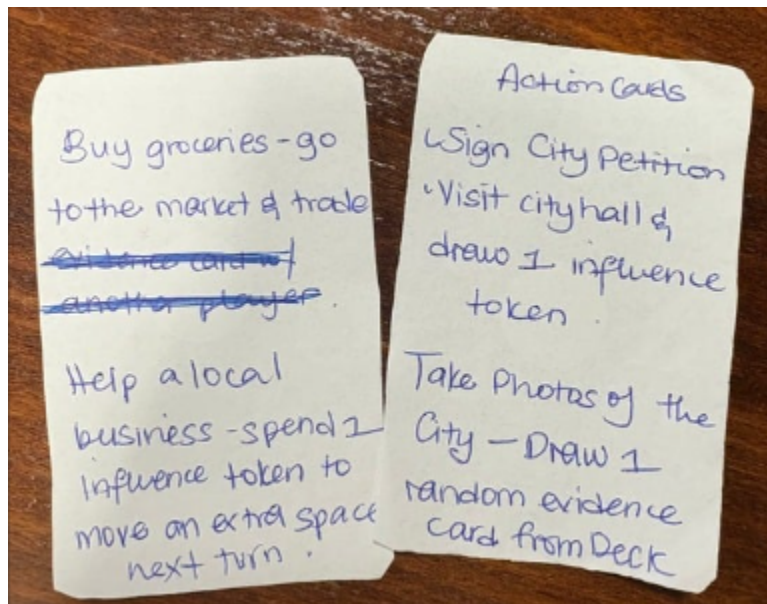 Buy groceries - go
to the market & trade
evidence card w/
another player.
Help a local
business - spend 1
influence token to
move an extra space
next turn.
Action Cards
Sign City Petition
Visit city hall &
draw 1 influence
token.
Take Photos of the
City - Draw 1
random evidence
card from Deck